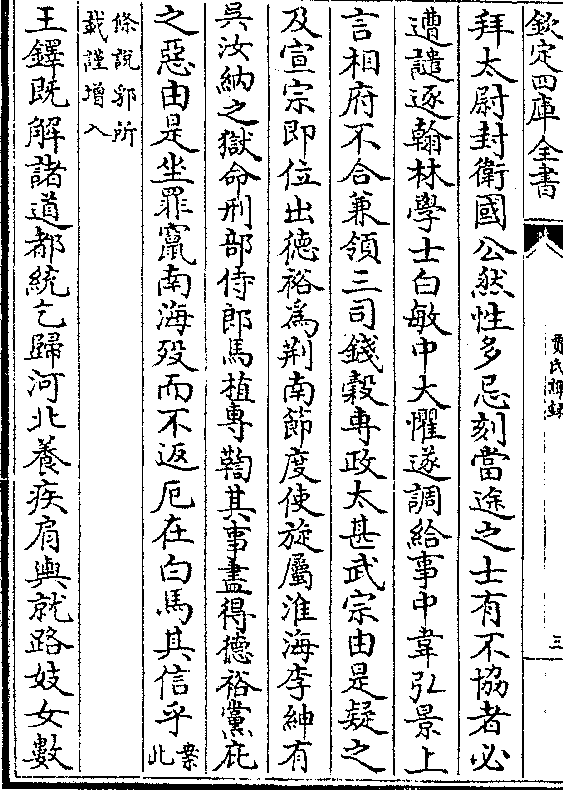 欽定四庫全書
賈氏譚録
三
拜太尉封衛國公然性多忌刻當途之士有不協者必
遭譴逐翰林學士白敏中大懼遂調給事中韋弘景上
言相府不合兼領三司錢榖專政太甚武宗由是疑之
及宣宗即位出德裕為荆南節度使旋屬淮海李紳有
吳汝納之獄命刑部侍郎馬植專鞫其事盡得德裕黨庇
之惡由是坐罪竄南海歿而不返厄在白馬其信乎案此
條說郛所
載謹增入
王鐸既解諸道都統乞歸河北養疾肩輿就路妓女數